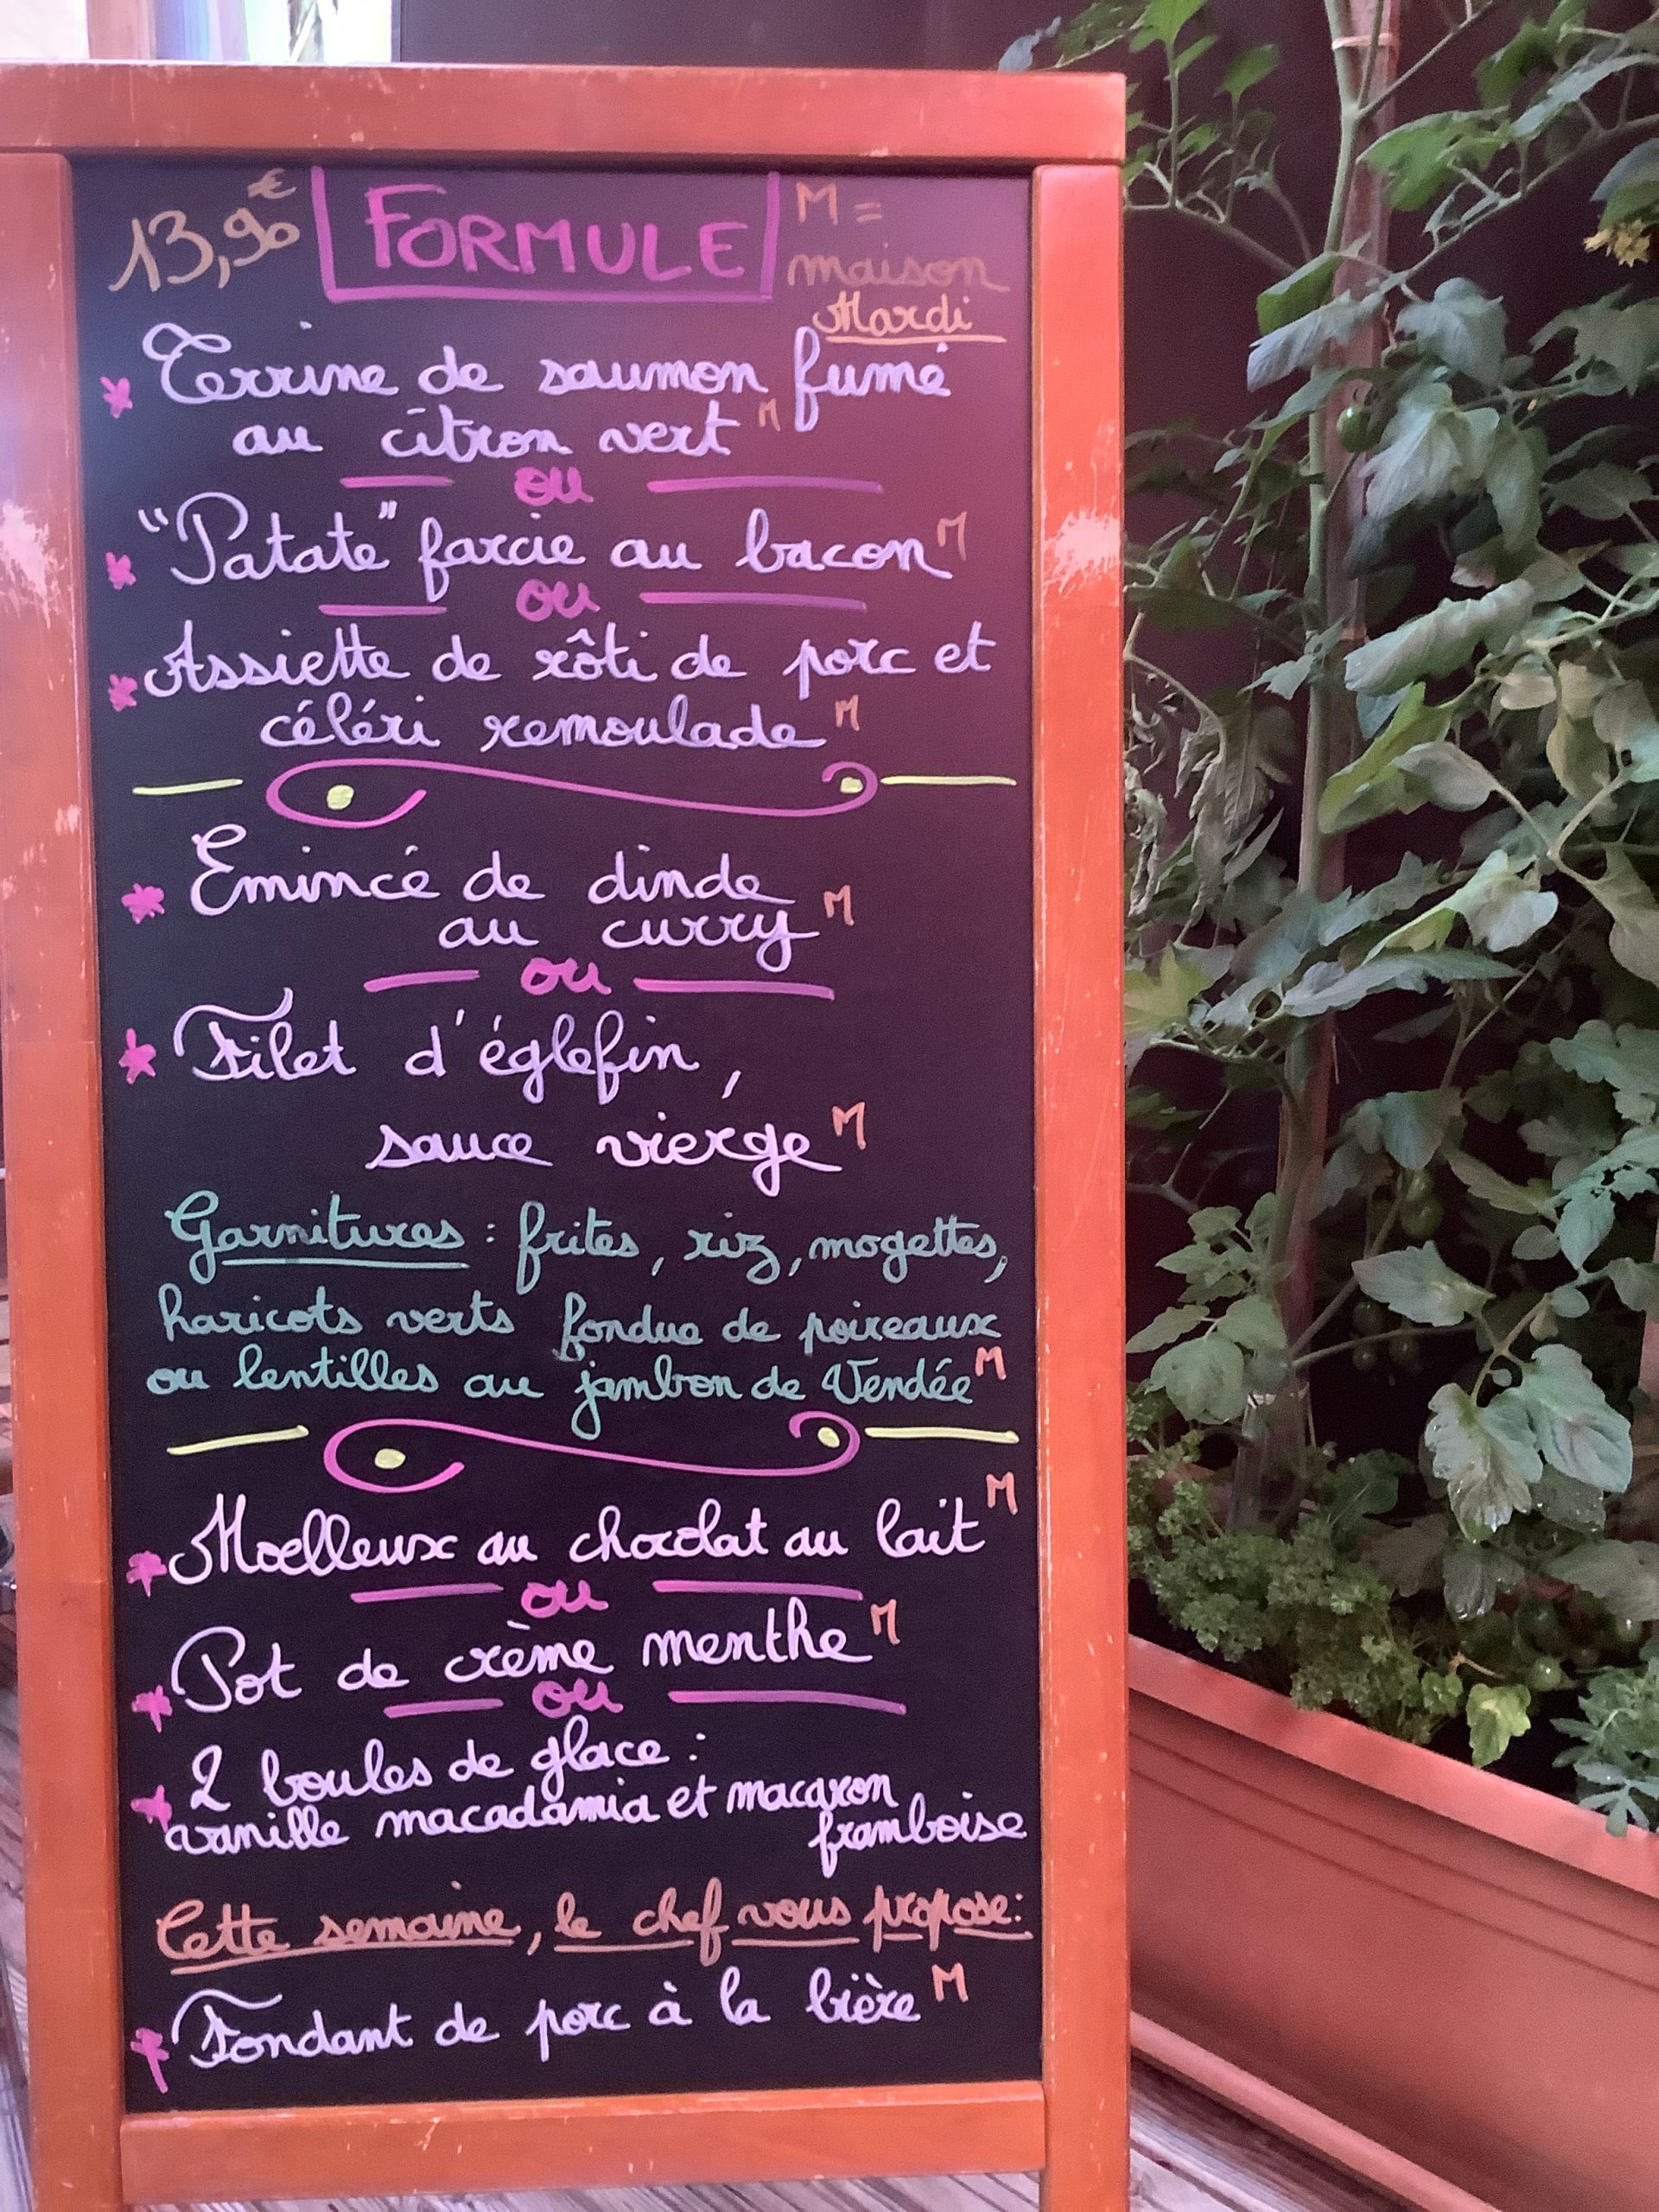 13,90€ FORMULE M =
maison
Mardi
Terrine de saumon fumé
au citron vert M
ou
"Patate" farcie au bacon M
ou
Assiette de rôti de porc et
céléri remoulade M
Emincé de dinde
au curry M
ou
Filet d'églefin,
sauce vierge M
Garnitures : frites, riz, mogettes,
haricots verts fondue de poireaux
ou lentilles au jambon de Vendée M
Moelleux au chocolat au lait M
ou
Pot de crème menthe M
ou
2 boules de glace :
vanille macadamia et macaron
framboise
Cette semaine, le chef vous propose :
Fondant de porc à la bière M